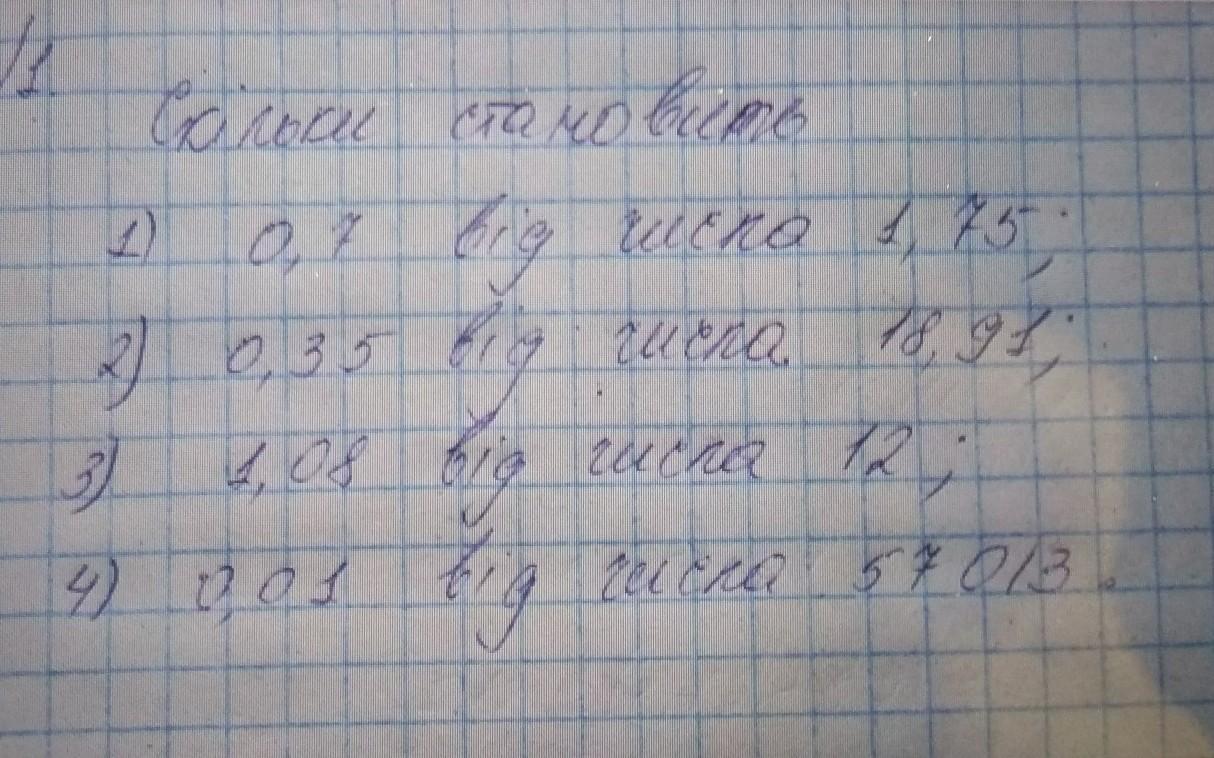 1
Скільки становить
1) 0,7 від числа 1,75;
2) 0,35 від числа 18,91;
3) 1,08 від числа 12;
4) 0,01 від числа 57013.